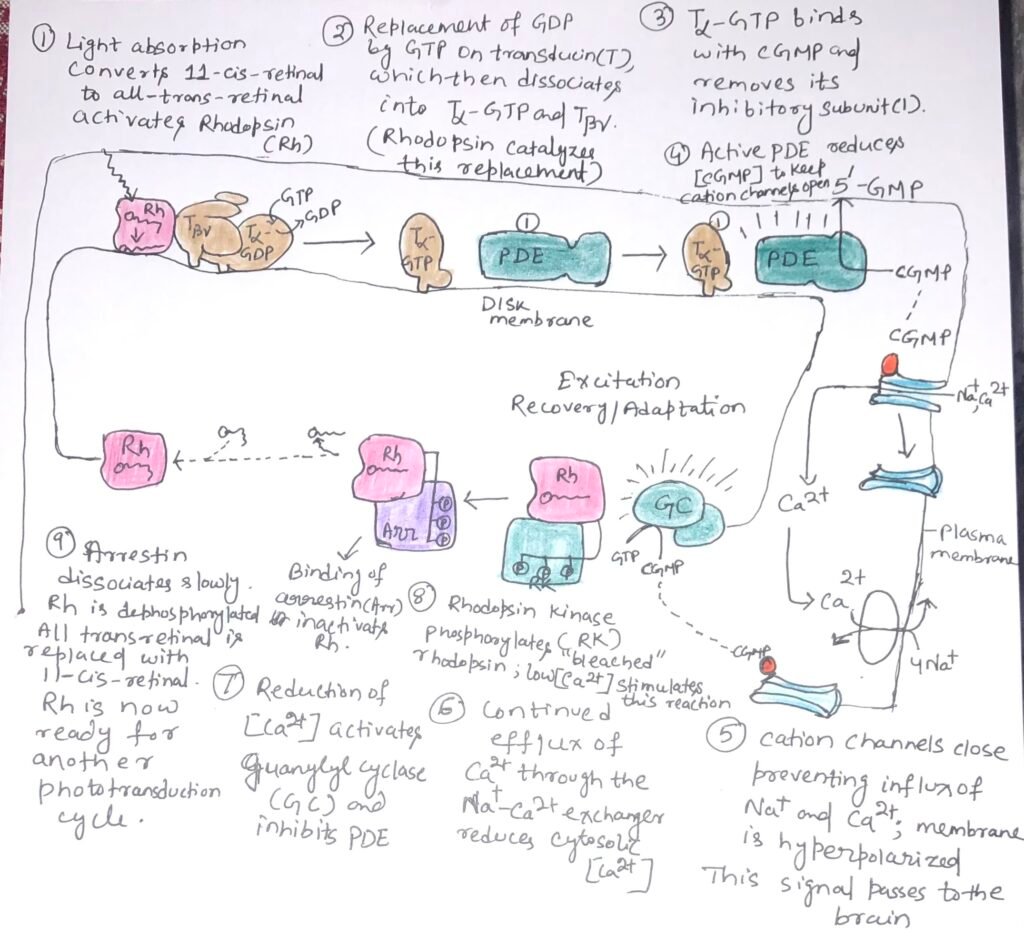 ① Light absorption
converts 11-cis-retinal
to all-trans-retinal
activates Rhodopsin
(Rh)
② Replacement of GDP
by GTP on transducin(T),
which then dissociates
into Tα-GTP and Tβγ.
(Rhodopsin catalyzes
this replacement)
③ Tα-GTP binds
with cGMP and
removes its
inhibitory subunit(I).
④ Active PDE reduces
[cGMP] to keep
cation channels open
5'-GMP
Rh
Tβγ
Tα-
GDP
GTP
GDP
Tα-
GTP
①
PDE
①
Tα-
GTP
PDE
cGMP
cGMP
DISK
membrane
Excitation
Recovery/Adaptation
Na⁺, Ca²⁺
Ca²⁺
Plasma
membrane
Rh
Rh
Arr
P
P
P
Rh
P P P
RK
GC
GTP
cGMP
2+
Ca
4Na⁺
cGMP
⑨ Arrestin
dissociates slowly.
Rh is dephosphorylated
All trans-retinal is
replaced with
11-cis-retinal.
Rh is now
ready for
another
phototransduction
cycle.
Binding of
arrestin(Arr)
inactivate
Rh.
⑧ Rhodopsin kinase
phosphorylates (RK)
"bleached"
rhodopsin; low[Ca²⁺] stimulates
this reaction
⑦ Reduction of
[Ca²⁺] activates
guanylyl cyclase
(GC) and
inhibits PDE
⑥ Continued
efflux of
Ca²⁺ through the
Na⁺-Ca²⁺ exchanger
reduces cytosolic
[Ca²⁺]
⑤ cation channels close
preventing influx of
Na⁺ and Ca²⁺; membrane
is hyperpolarized
This signal passes to the
brain